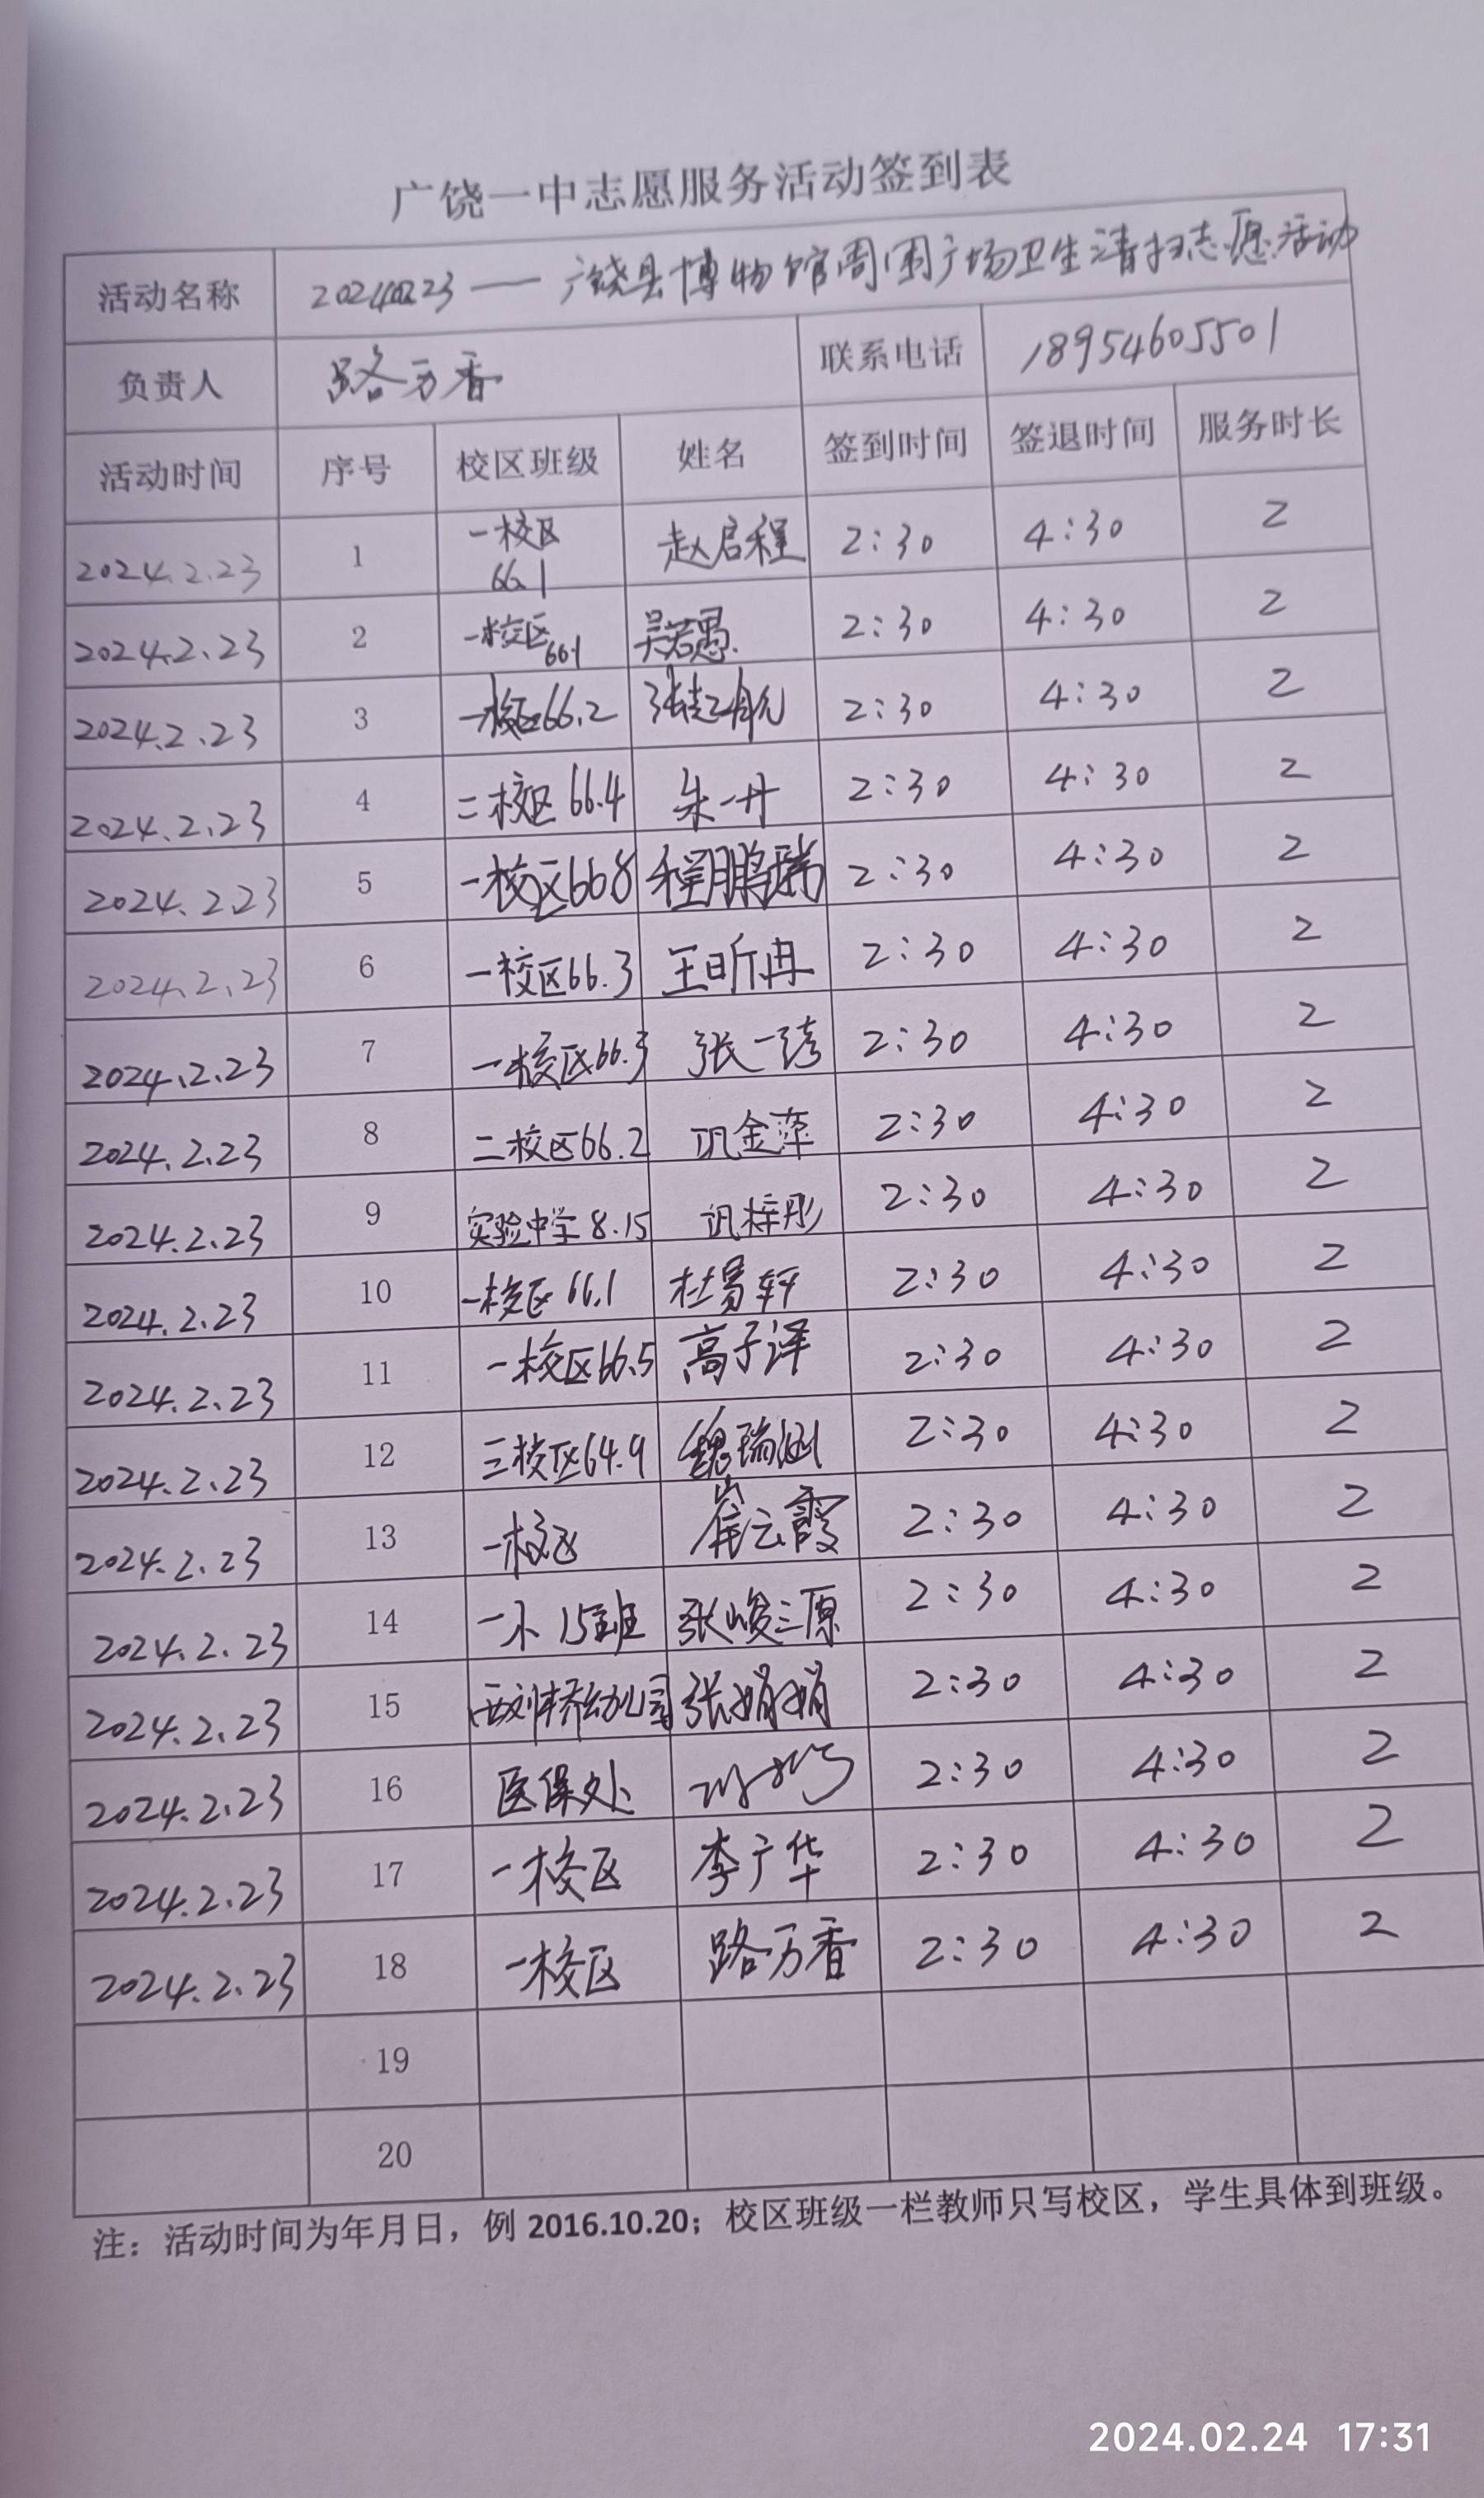 广饶一中志愿服务活动签到表
活动名称 20240223——广饶县博物馆周围广场卫生清扫志愿活动
负责人 路万香 联系电话 18954605501
活动时间 序号 校区班级 姓名 签到时间 签退时间 服务时长
2024.2.23 1 一校区 66.1 赵启程 2:30 4:30 2
2024.2.23 2 一校区 66.1 吴若愚 2:30 4:30 2
2024.2.23 3 一校区66.2 2:30 4:30 2
2024.2.23 4 二校区 66.4 朱一丹 2:30 4:30 2
2024.2.23 5 一校区66.8 程鹏瑞 2:30 4:30 2
2024.2.23 6 一校区66.3 王昕冉 2:30 4:30 2
2024.2.23 7 一校区66.3 张一 2:30 4:30 2
2024.2.23 8 二校区66.2 巩金萍 2:30 4:30 2
2024.2.23 9 实验中学 8.15 巩梓彤 2:30 4:30 2
2024.2.23 10 一校区 66.1 杜昜轩 2:30 4:30 2
2024.2.23 11 一校区66.5 高子译 2:30 4:30 2
2024.2.23 12 三校区64.9 魏瑞涵 2:30 4:30 2
2024.2.23 13 一校区 崔云霞 2:30 4:30 2
2024.2.23 14 一小 15班 张峻三原 2:30 4:30 2
2024.2.23 15 西刘桥幼儿园 张娟娟 2:30 4:30 2
2024.2.23 16 医保处 2:30 4:30 2
2024.2.23 17 一校区 李广华 2:30 4:30 2
2024.2.23 18 一校区 路万香 2:30 4:30 2
19
20
注：活动时间为年月日，例 2016.10.20；校区班级一栏教师只写校区，学生具体到班级。
2024.02.24 17:31